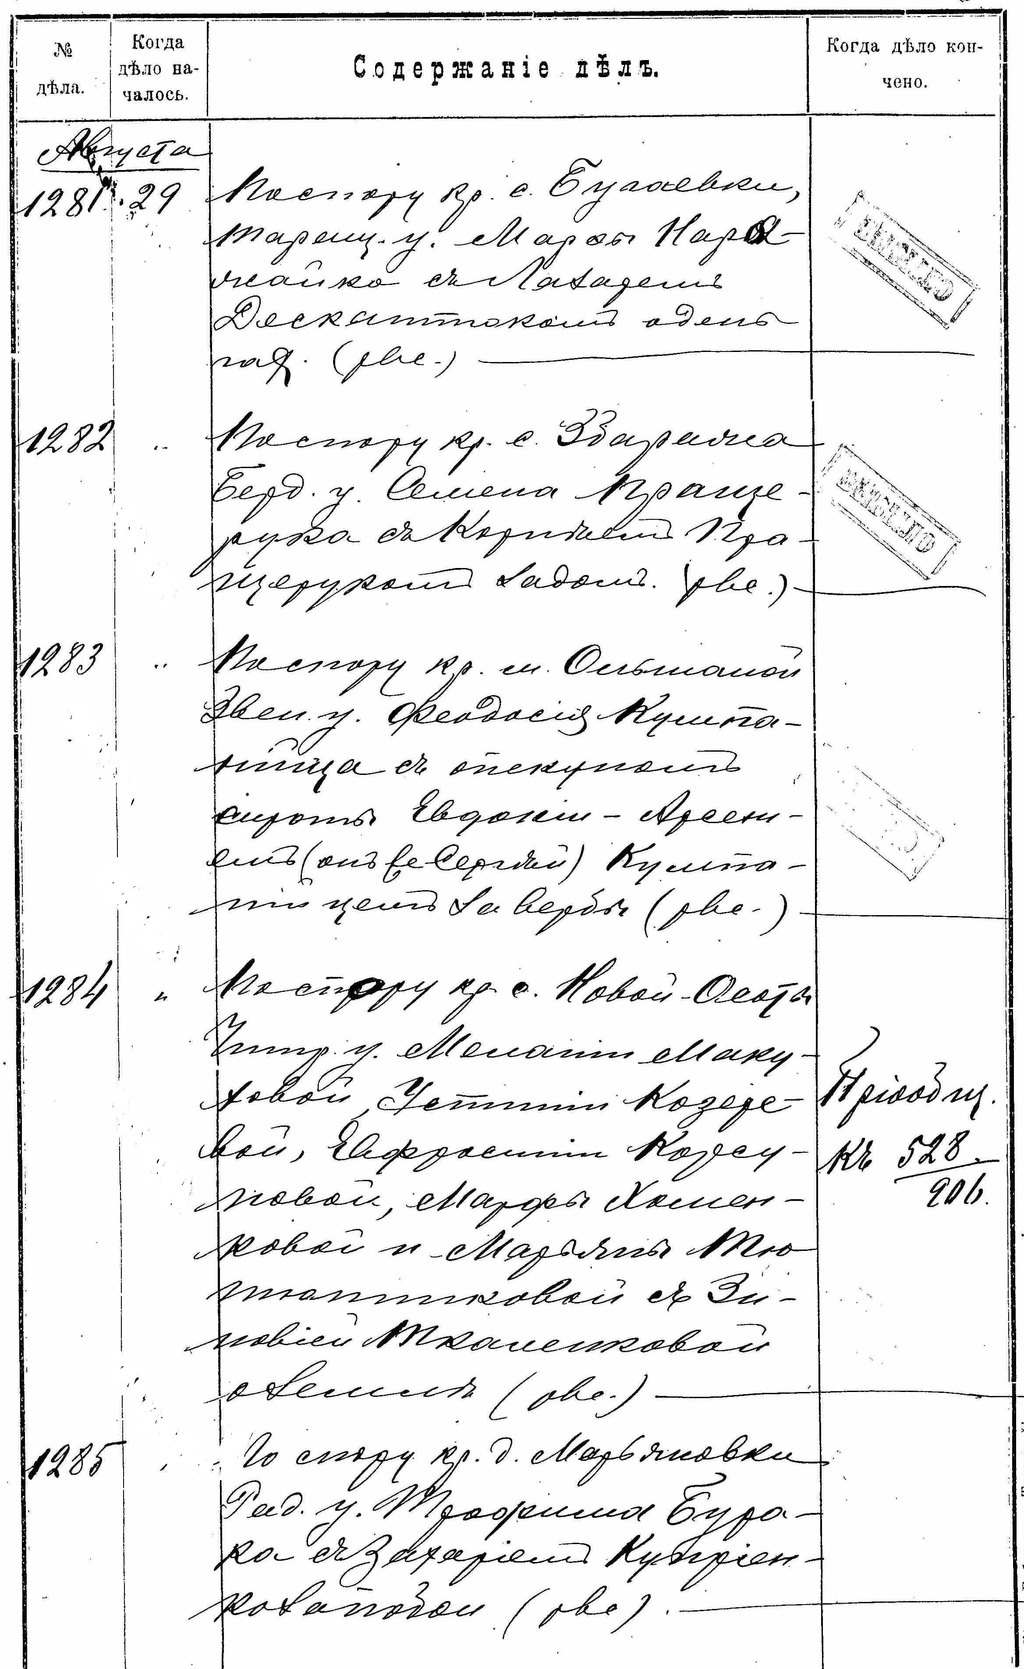 № дѣла.
Когда дѣло на-
чалось.
Содержаніе дѣлъ.
Когда дѣло кон-
чено.
Августа
1281. 29 По спору кр. с. Бугаевки,
Таращ. у. Марѳы Наро
жайко съ Лазаремъ
о день
гах. (рве.)
1282 " По спору кр. с. Збаражна
Берд. у. Семена Праще-
рука съ Корнѣемъ Пра-
щерукомъ садомъ. (рве.)
1283 " По спору кр. м. Ольшаной
Звен. у. Феодосія Кумпа-
ница съ опекуномъ
сироты Евдокіи - Арсені-
емъ (онъ же Сергѣй) Кумпа-
ницемъ за вербы (рве.)
1284 " По спору кр. с. Новой-Осоты
Чигир. у. Меланіи Маку-
ховой, Устиніи Козере-
вой, Евфросиніи Корсу-
новой, Марфы Хомен-
ковой и Марьяны Тю
тюнниковой съ Зи-
новіей Ткаченковой
о землѣ (рве.)
Пріобщ.
къ 528
906.
1285 " По спору кр. д. Марьяновки
Рад. у. Трофима Бура-
ка съ Захаріемъ Купріен-
ко (рве)